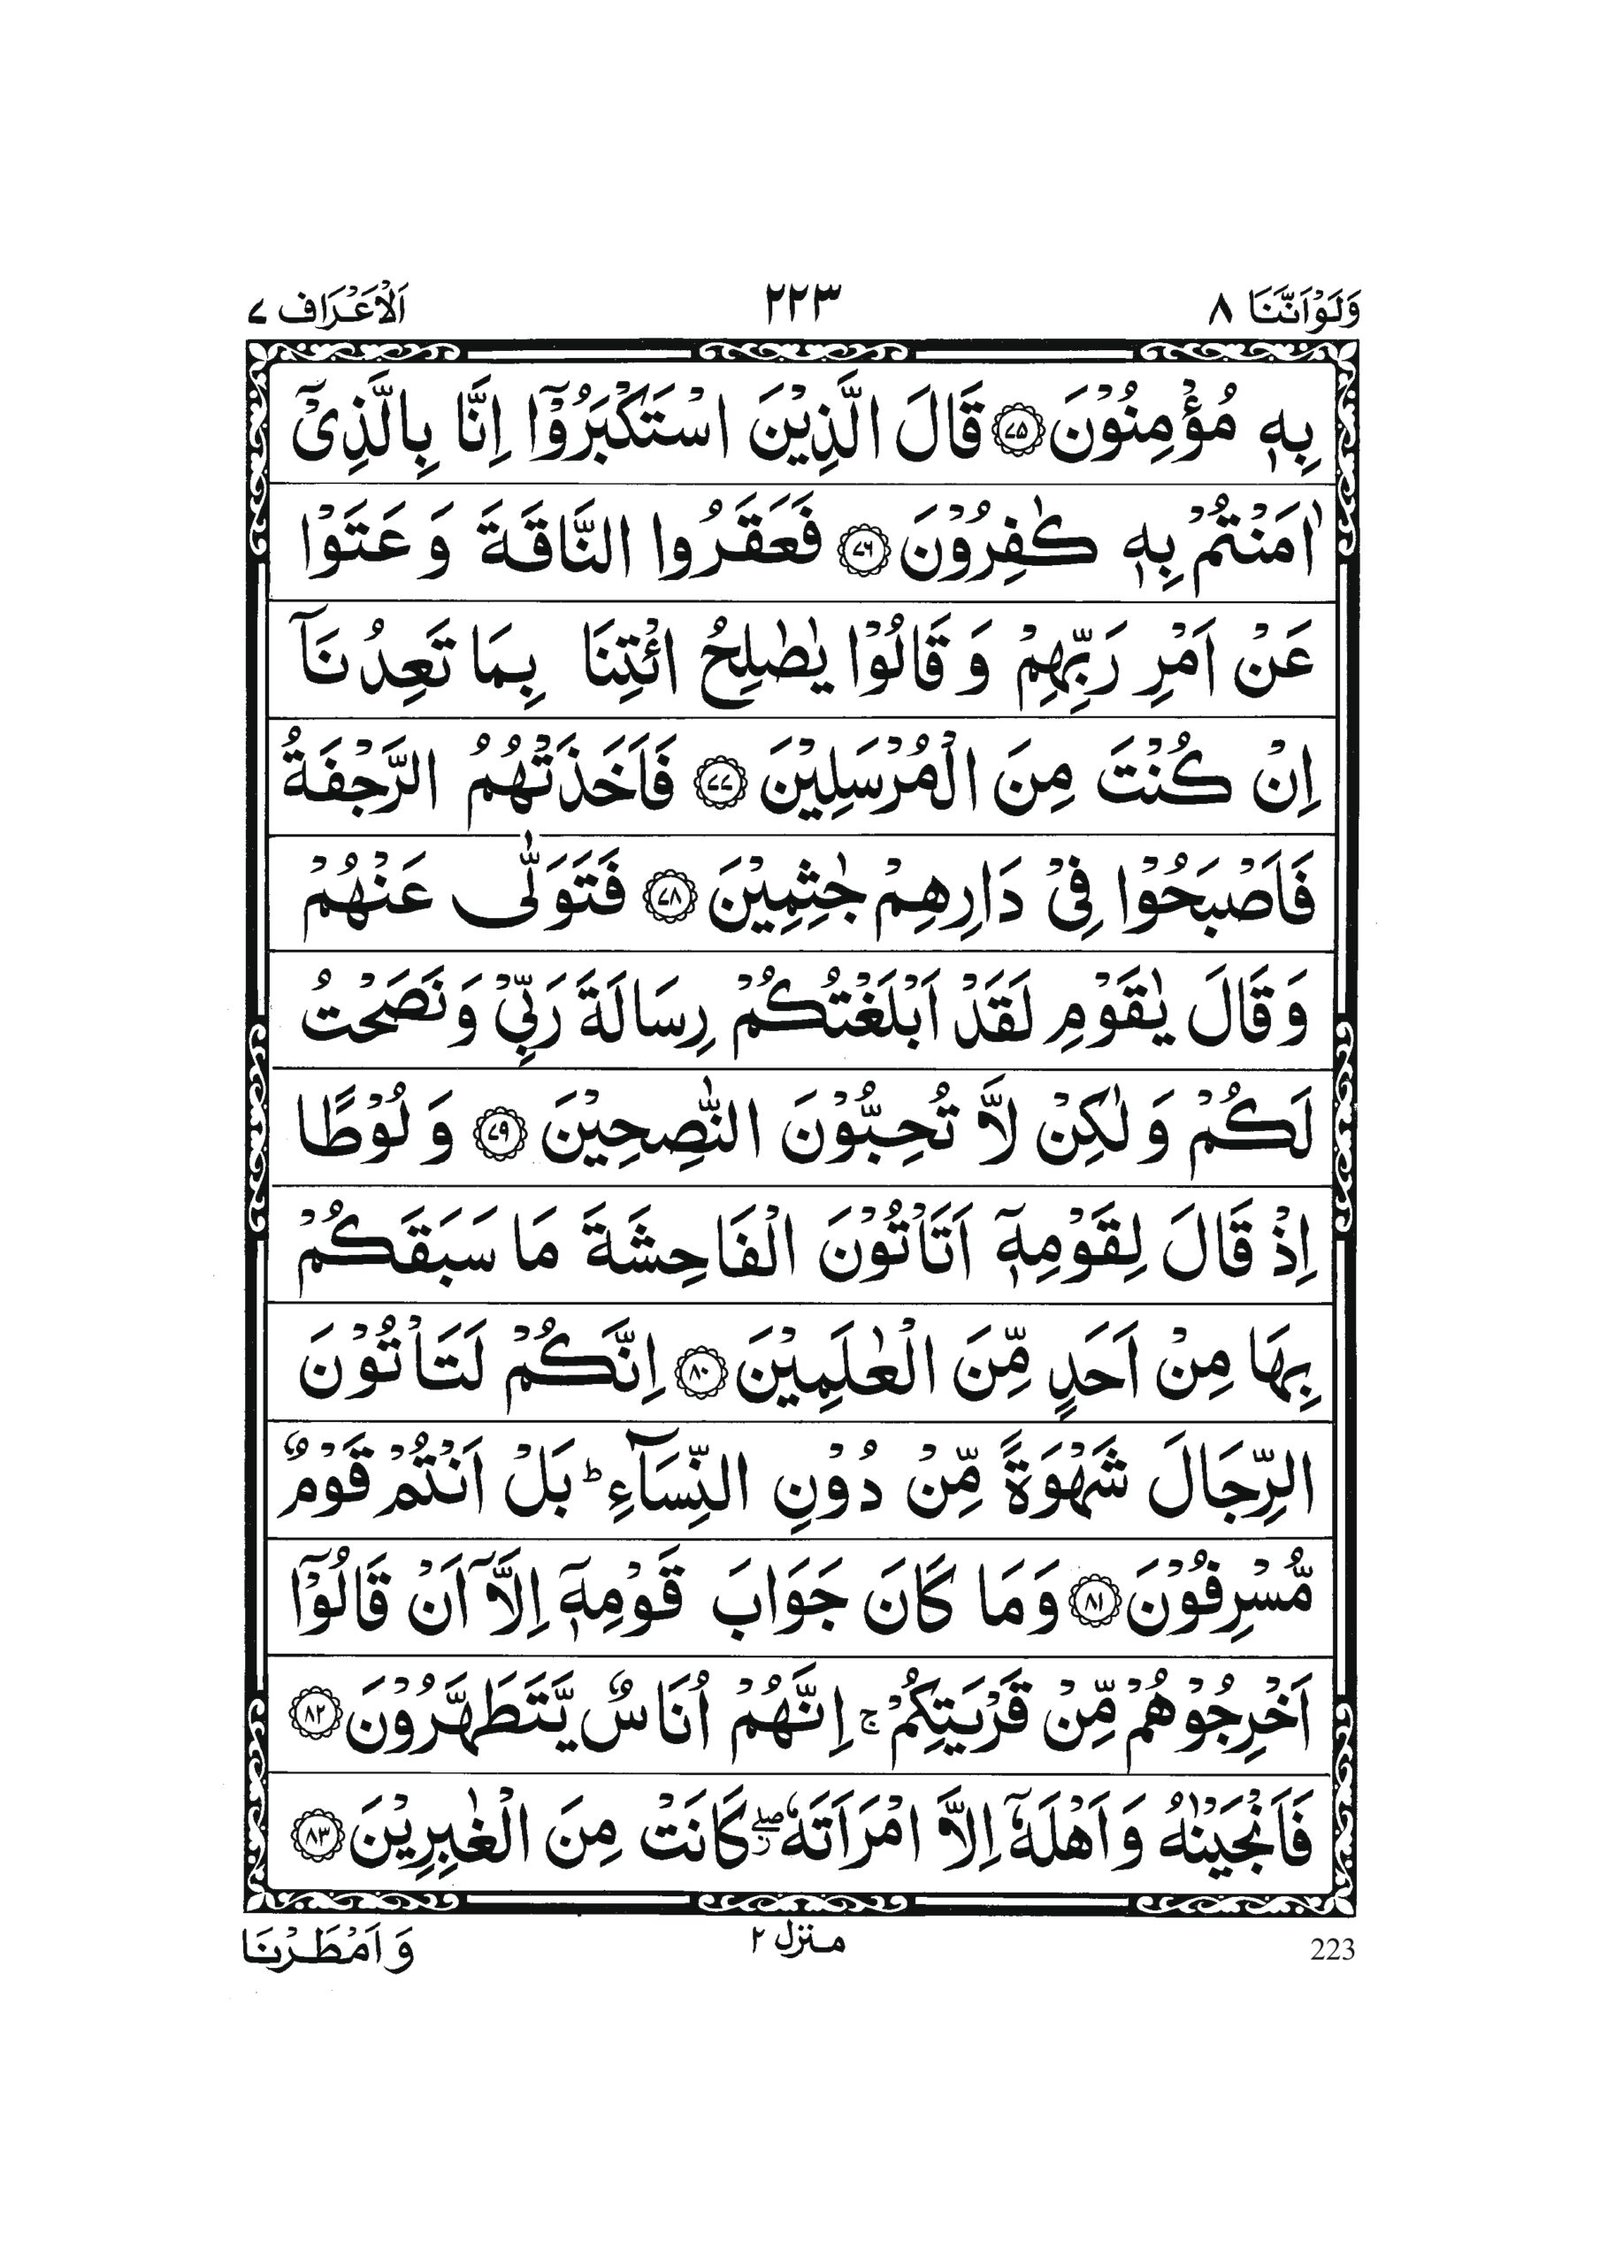 وَلَوْاَنَّنَا ٨ ٢٢٣ اَلْاَعْرَاف ٧
بِهٖ مُؤْمِنُوْنَ ۝٧٥ قَالَ الَّذِيْنَ اسْتَكْبَرُوْۤا اِنَّا بِالَّذِىْۤ
اٰمَنْتُمْ بِهٖ كٰفِرُوْنَ ۝٧٦ فَعَقَرُوا النَّاقَةَ وَ عَتَوْا
عَنْ اَمْرِ رَبِّهِمْ وَ قَالُوْا يٰصٰلِحُ ائْتِنَا بِمَا تَعِدُنَاۤ
اِنْ كُنْتَ مِنَ الْمُرْسَلِيْنَ ۝٧٧ فَاَخَذَتْهُمُ الرَّجْفَةُ
فَاَصْبَحُوْا فِىْ دَارِهِمْ جٰثِمِيْنَ ۝٧٨ فَتَوَلّٰى عَنْهُمْ
وَ قَالَ يٰقَوْمِ لَقَدْ اَبْلَغْتُكُمْ رِسَالَةَ رَبِّىْ وَ نَصَحْتُ
لَكُمْ وَ لٰكِنْ لَّا تُحِبُّوْنَ النّٰصِحِيْنَ ۝٧٩ وَ لُوْطًا
اِذْ قَالَ لِقَوْمِهٖۤ اَتَاْتُوْنَ الْفَاحِشَةَ مَا سَبَقَكُمْ
بِهَا مِنْ اَحَدٍ مِّنَ الْعٰلَمِيْنَ ۝٨٠ اِنَّكُمْ لَتَاْتُوْنَ
الرِّجَالَ شَهْوَةً مِّنْ دُوْنِ النِّسَآءِ ؕ بَلْ اَنْتُمْ قَوْمٌ
مُّسْرِفُوْنَ ۝٨١ وَ مَا كَانَ جَوَابَ قَوْمِهٖۤ اِلَّاۤ اَنْ قَالُوْۤا
اَخْرِجُوْهُمْ مِّنْ قَرْيَتِكُمْ ۚ اِنَّهُمْ اُنَاسٌ يَّتَطَهَّرُوْنَ ۝٨٢
فَاَنْجَيْنٰهُ وَ اَهْلَهٗۤ اِلَّا امْرَاَتَهٗ ۖز كَانَتْ مِنَ الْغٰبِرِيْنَ ۝٨٣
وَ اَمْطَرْنَا منزل ٢ 223